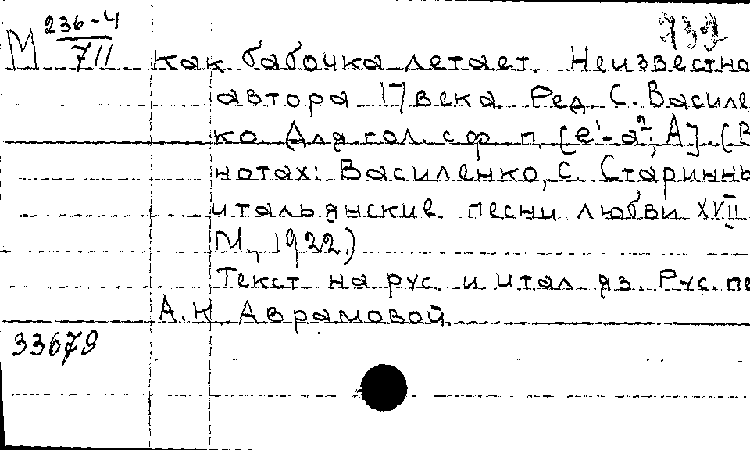 М 236-4/711
739
Как бабочка летает. Неизвестно
автора 17 века. Ред. С. Василе
ко. Для гол. с ф-п. [e¹-a², A]. (В
нотах: Василенко, С. Старинны
итальянские песни любви XVII
М., 1922.)
Текст на рус. и итал. яз. Рус. пе
А.К. Аврамовой.
33679